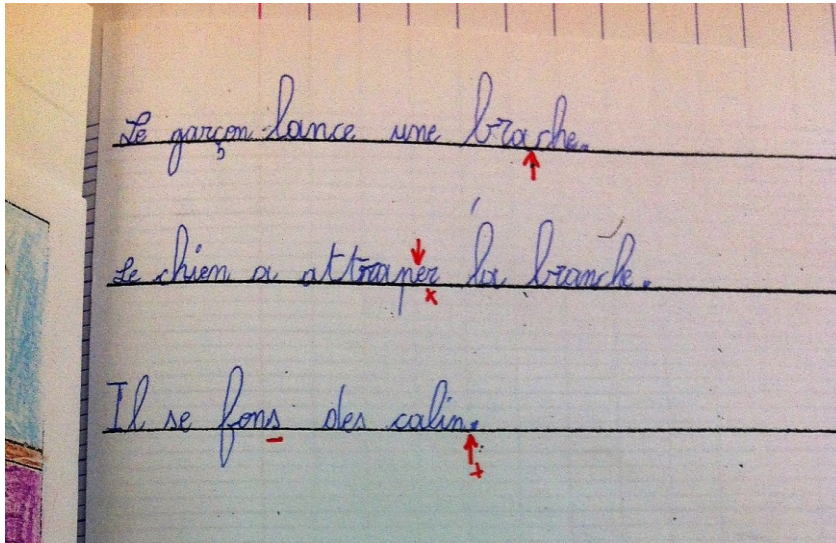 Le garçon lance une brache.
Le chien a attraper la branche.
Il se fons des calin.